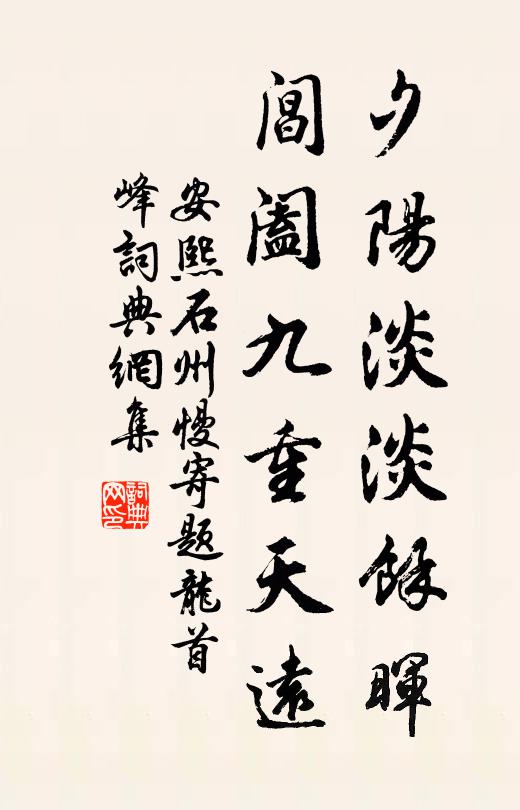 夕陽淡淡餘暉
閶闔九重天遠
安熙石州慢寄題龍首
峰詞典網集
詞典網印